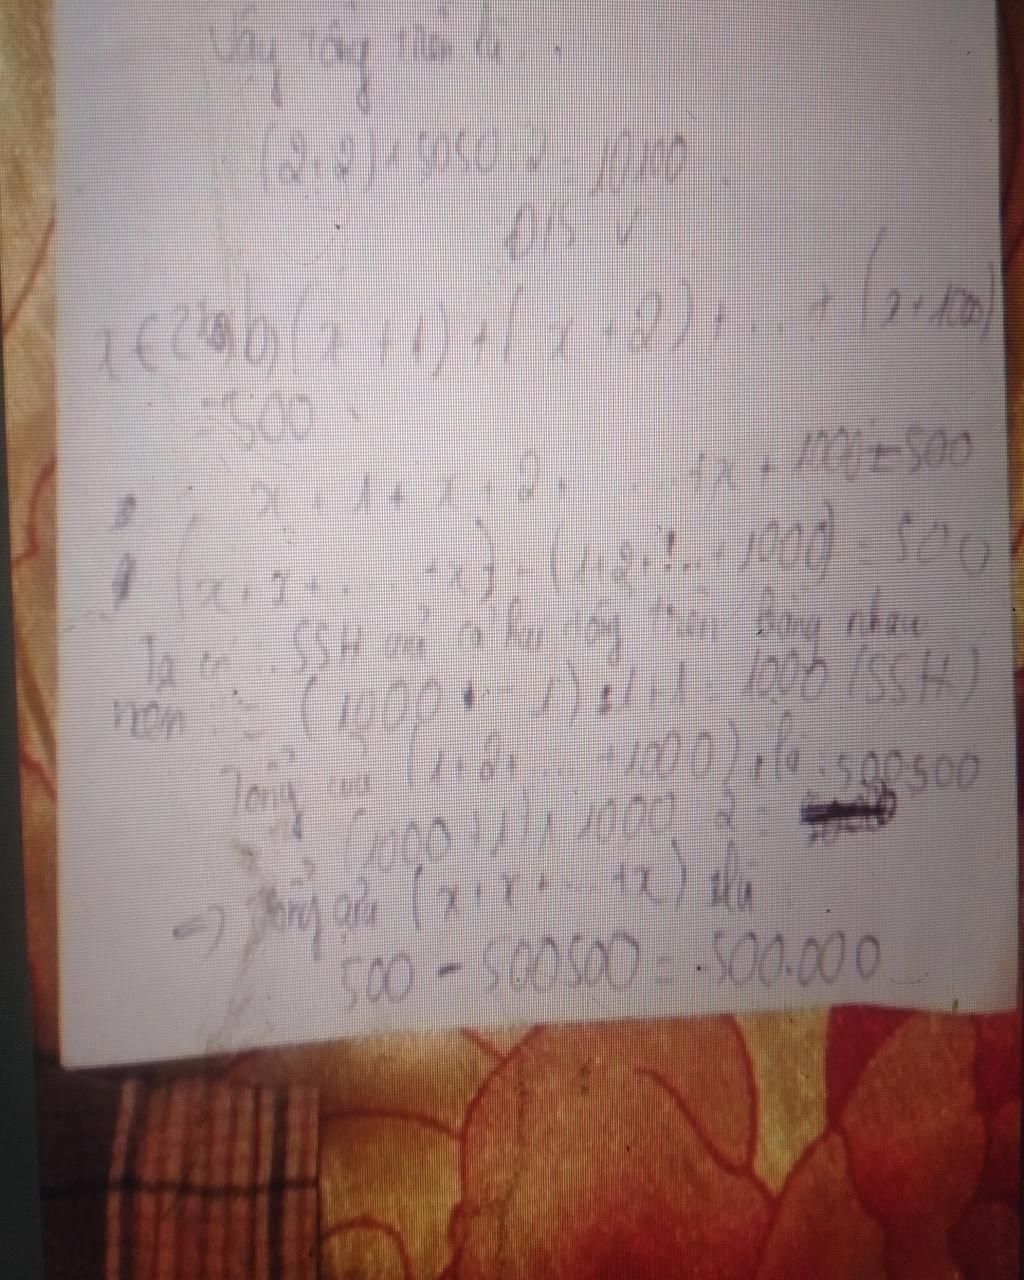 Vậy tổng trên là
(2+2) x 5050 : 2 = 10100
Đ/S
b) (x + 1) + (x + 2) + ... + (x + 1000)
= 500
x + 1 + x + 2 + ... + x + 1000 = 500
(x + x + ... + x) + (1 + 2 + ... + 1000) = 500
Ta có: SSH của cả hai dãy trên bằng nhau
nên = (1000 - 1) : 1 + 1 = 1000 (SSH)
Tổng của (1 + 2 + ... + 1000) là: 500500
(1000 + 1) x 1000 : 2 =
=> Tổng của (x + x + ... + x) là
500 - 500500 = -500.000